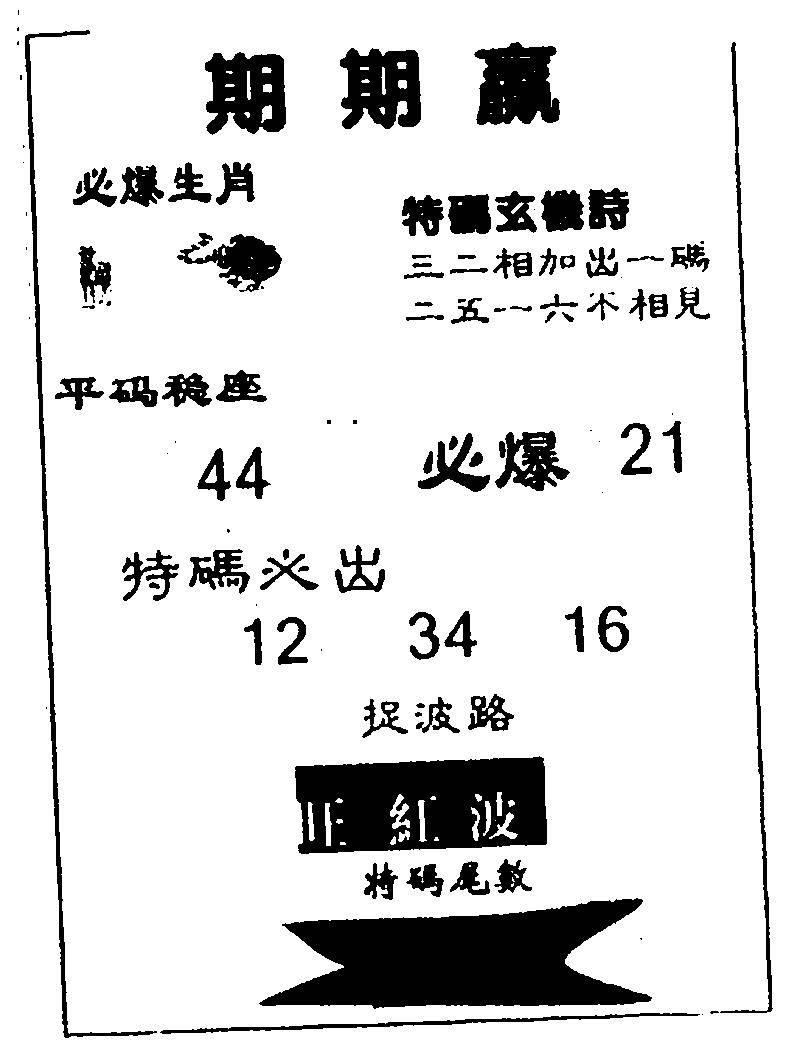 期期贏
必爆生肖
特碼玄機詩
三二相加出一碼
二五一六不相見
平码稳座
44
必爆 21
特碼必出
12 34 16
捉波路
旺紅波
特碼尾數